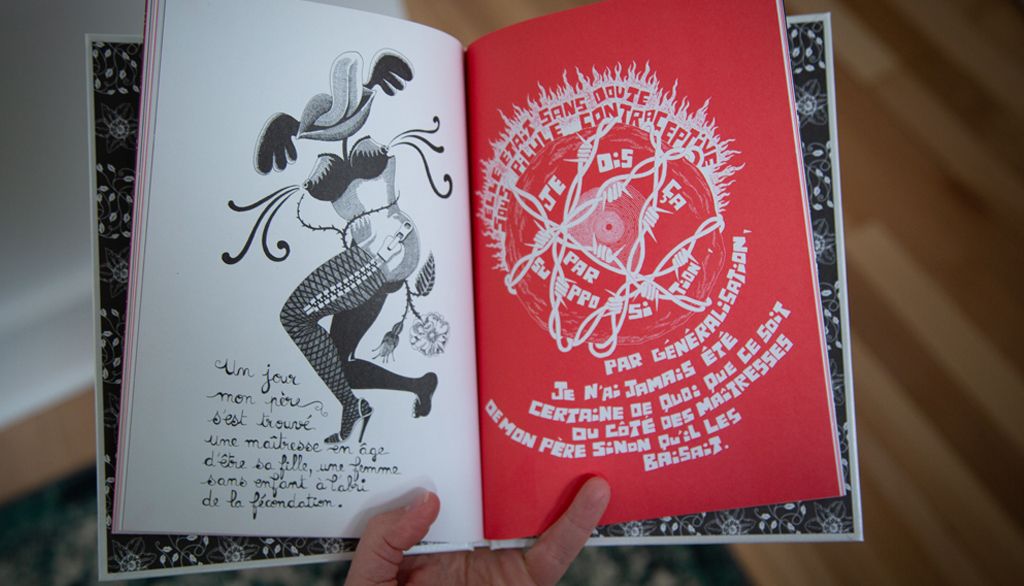 Un jour
mon père
s'est trouvé
une maîtresse en âge
d'être sa fille, une femme
sans enfant à l'abri
de la fécondation.
ELLE SANS DOUTE
SANS PILULE CONTRACEPTIVE
JE DIS ÇA
PAR
PPO SI TION,
PAR GÉNÉRALISATION,
JE N'AI JAMAIS ÉTÉ
CERTAINE DE QUOI QUE CE SOIT
DU CÔTÉ DES MAÎTRESSES
DE MON PÈRE SINON QU'IL LES
BAISAIT.